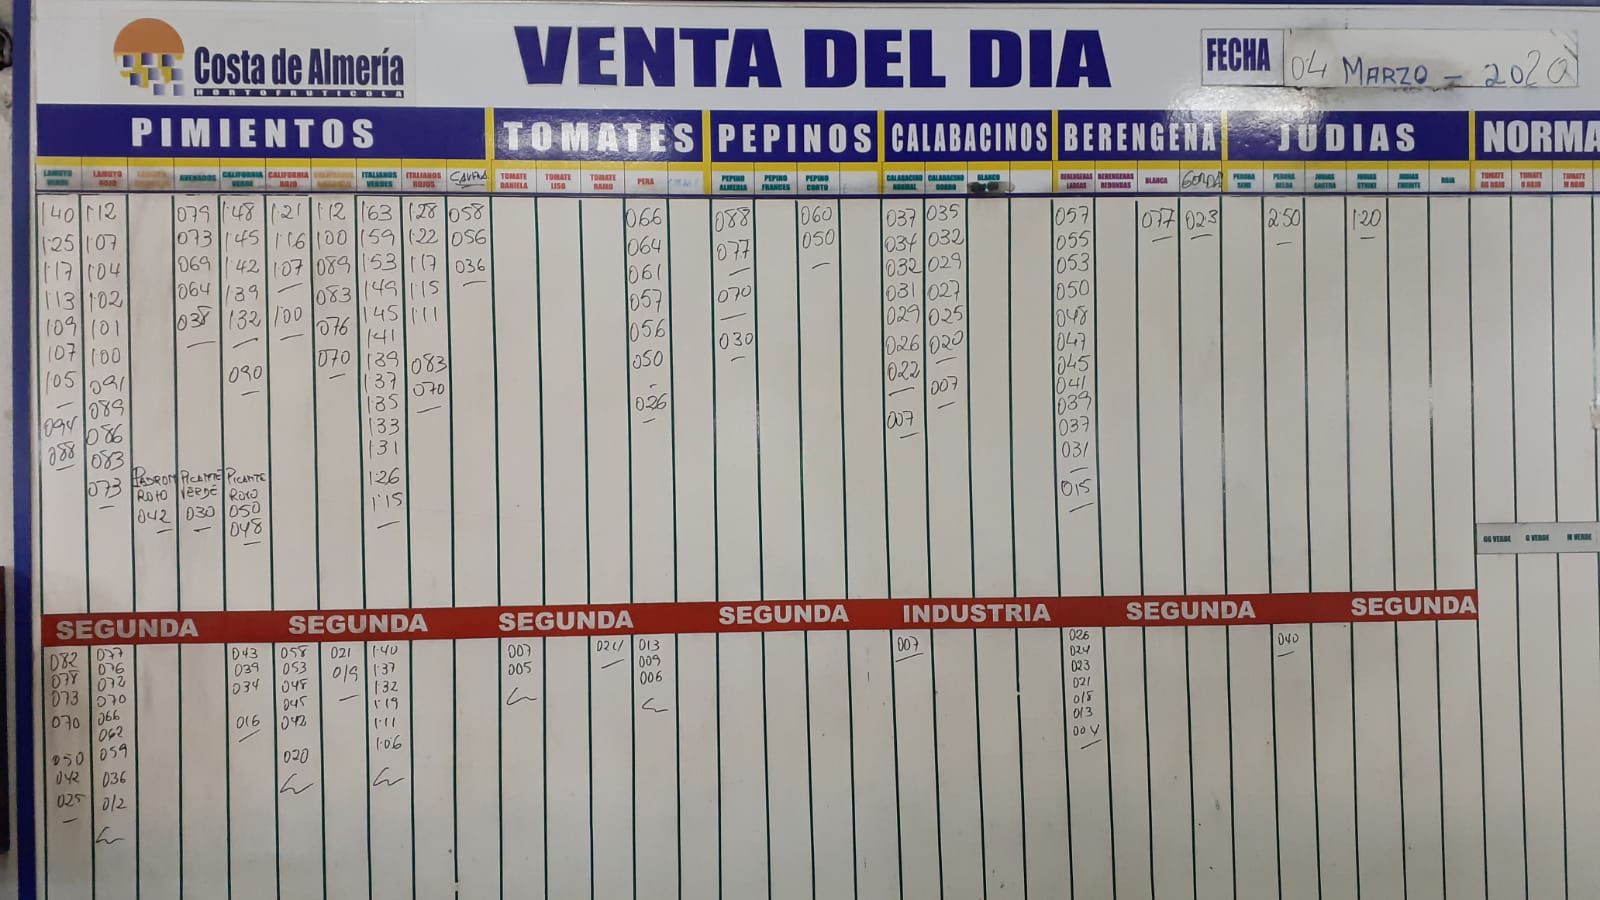 Costa de Almería
HORTOFRUTICOLA
VENTA DEL DIA
FECHA 04 MARZO - 2020
PIMIENTOS TOMATES PEPINOS CALABACINOS BERENGENA JUDIAS NORMA
LAMUYO VERDE
LAMUYO ROJO
AVENADOS
CALIFORNIA VERDE
CALIFORNIA ROJO
ITALIANOS VERDES
ITALIANOS ROJOS
TOMATE DANIELA
TOMATE LISO
TOMATE RAMO
PERA
PEPINO ALMERIA
PEPINO FRANCES
PEPINO CORTO
CALABACINO NORMAL
CALABACINO GORDO
BLANCO
BERENGENAS LARGAS
BERENGENAS REDONDAS
BLANCA
GORDA
PERONA SEMI
PERONA HELDA
JUDIAS STRIKE
ROJA
TOMATE GG ROJO
TOMATE G ROJO
TOMATE M ROJO
1·40
1·25
1·17
1·13
109
107
105
094
088
1·12
1·07
1·04
1·02
1·01
1·00
091
089
086
083
073
PADRON ROJO
042
079
073
069
064
038
PICANTE VERDE
030
1·48
1·45
1·42
1·39
1·32
090
PICANTE ROJO
050
048
1·21
1·16
1·07
1·00
1·12
1·00
089
083
076
070
1·63
1·59
1·53
1·49
1·45
1·41
1·39
1·37
1·35
1·33
1·31
1·26
1·15
1·28
1·22
1·17
1·15
1·11
083
070
058
056
036
066
064
061
057
056
050
026
088
077
070
030
060
050
037
034
032
031
029
026
022
007
035
032
029
027
025
020
007
057
055
053
050
048
047
045
041
039
037
031
015
077
023
250
1·20
GG VERDE G VERDE M VERDE
SEGUNDA SEGUNDA SEGUNDA SEGUNDA INDUSTRIA SEGUNDA SEGUNDA
082
078
073
070
050
042
025
077
076
072
070
066
062
059
036
012
043
039
034
016
058
053
048
045
042
020
021
019
1·40
1·37
1·32
1·19
1·11
1·06
007
005
024
013
009
006
007
026
024
023
021
018
013
004
040